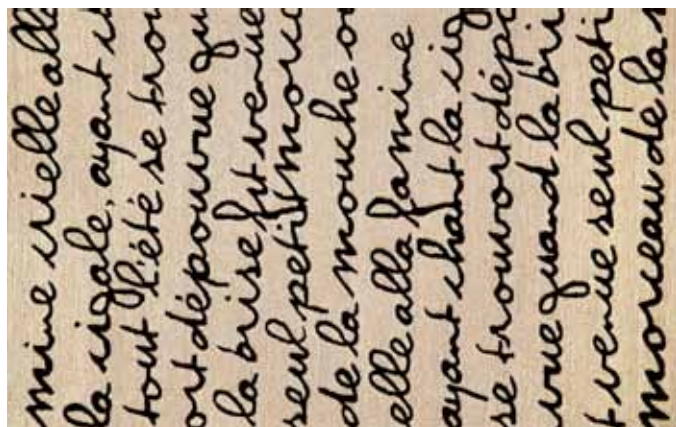 mine crielle alla
la cigale, ayant ch
tout l'été se trou
ort dépourvue qu
la brise fut venue
seul petit morce
de la mouche o
elle alla famine
ayant chant la cig
se trouvort dépo
vue quand la bri
t venue seul peti
morceau de la